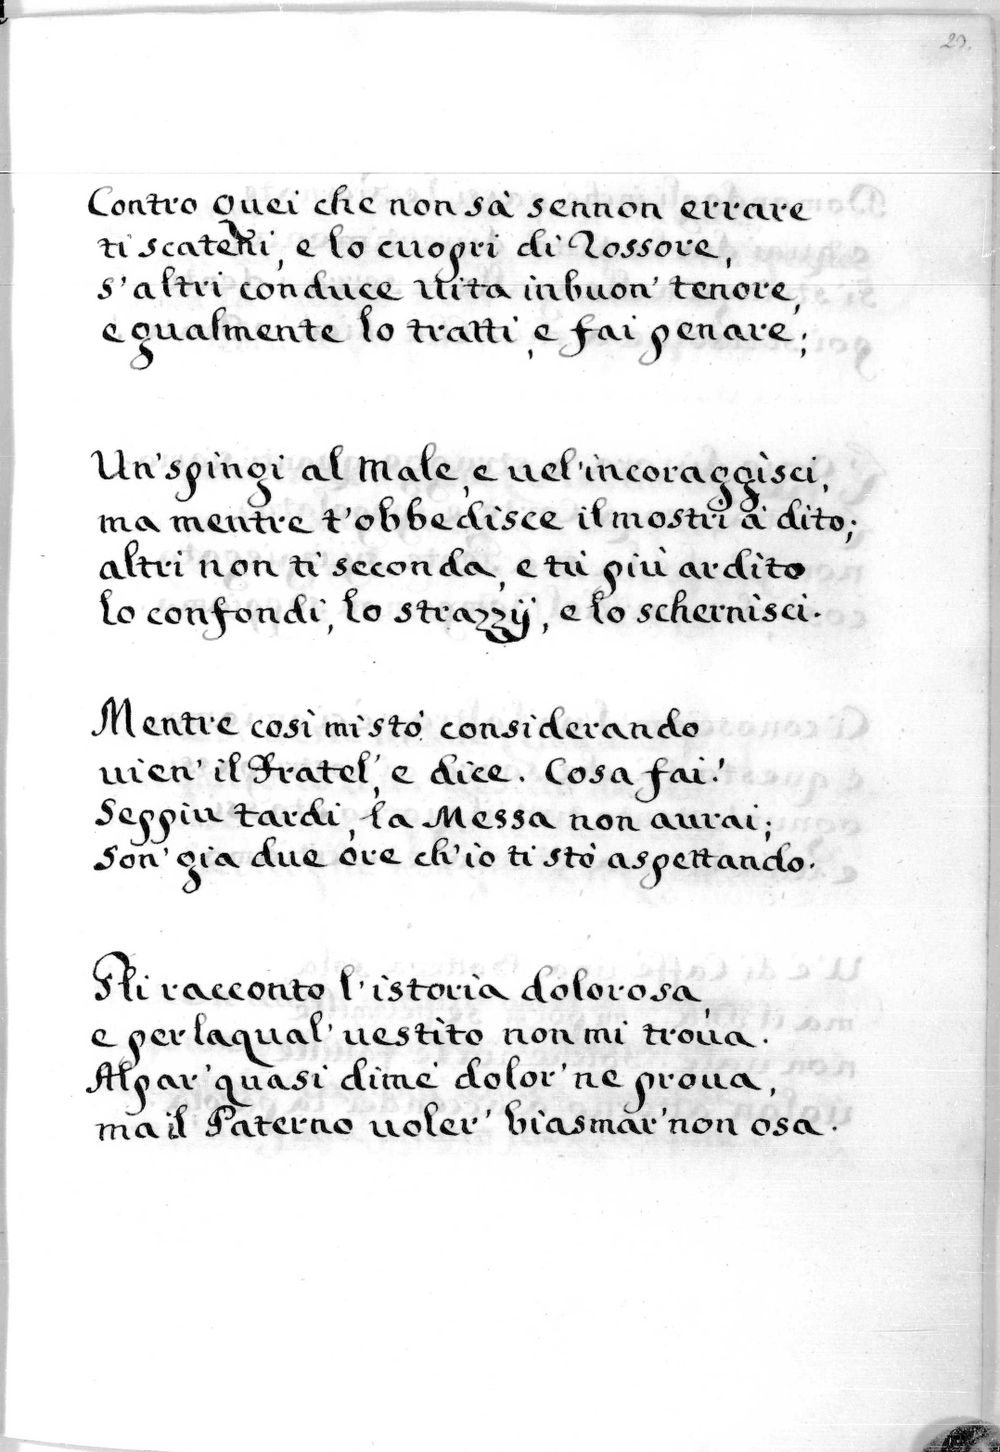 29.
Contro quei che non sà sennon errare
ti scateni, e lo cuopri di Rossore,
s'altri conduce uita in buon' tenore,
egualmente lo tratti, e fai penare;
Un' spingi al Male, e uel' incoraggisci,
ma mentre t'obbedisce il mostri à dito;
altri non ti seconda, e tù più ardito
lo confondi, lo strazzij, e lo schernisci.
Mentre così mi stò considerando
uien' il Fratel', e dice. Cosa fai?
Seppiu tardi, la Messa non aurai;
Son' gia due ore ch'io ti stò aspettando.
Gli racconto l'istoria dolorosa,
e per laqual' uestito non mi troua.
Alpar' quasi dimè dolor' ne proua,
ma il Paterno uoler' biasmar' non osa.